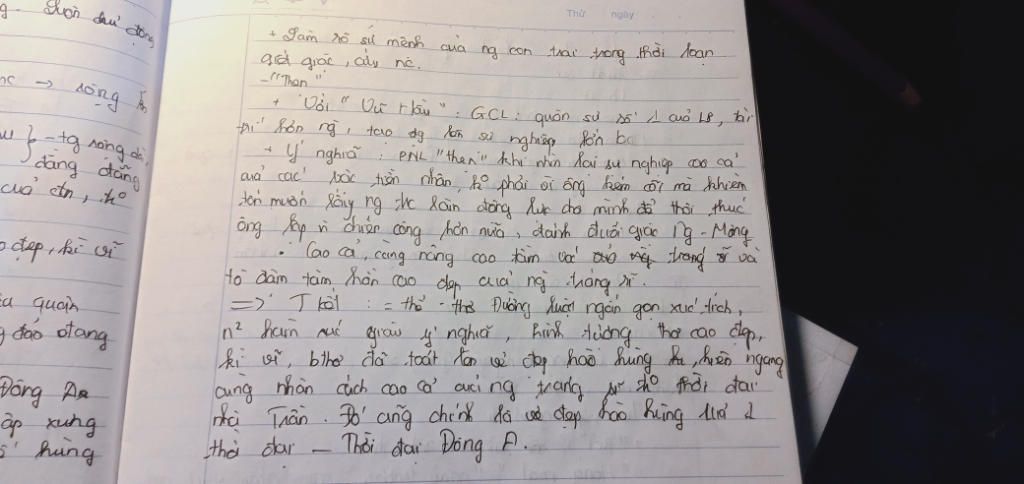 g. luôn chủ động
Thứ ngày
+ Làm rõ sứ mệnh của ng con trai trong thời loạn
giặc giã, cứu nc.
→ sông
- "Thẹn"
+ Với "Vũ Hầu": GCL: quân sư số 1 của LB, tài
trí hơn ng, tạo dg lên sự nghiệp lớn
} - tg sông dài,
dằng dẵng
+ Ý nghĩa: PNL "thẹn" khi nhìn lại sự nghiệp cao cả
của các bậc tiền nhân, ko phải vì ông kém cỏi mà khiêm
tốn muốn lấy ng # làm động lực cho mình để thôi thúc
ông lập n chiến công hơn nữa, đánh đuổi giặc Ng - Mông
đẹp, kì vĩ
. Cao cả, càng nâng cao tầm vóc trang sĩ và
tô đậm tâm hồn cao đẹp của ng tráng sĩ.
quân
=> T kết: = thể thơ Đường luật ngắn gọn xúc tích,
đáo otang
n² hàm xúc giàu ý nghĩa, hình tượng thơ cao đẹp,
kì vĩ, bthơ đã toát lên vẻ đẹp hào hùng, hiên ngang
Đông A
cùng nhân cách cao cả của ng trang sĩ thời đại
ập xưng
nhà Trần. Đó cũng chính là vẻ đẹp hào hùng của 1
hùng
thời đại - Thời đại Đông A.